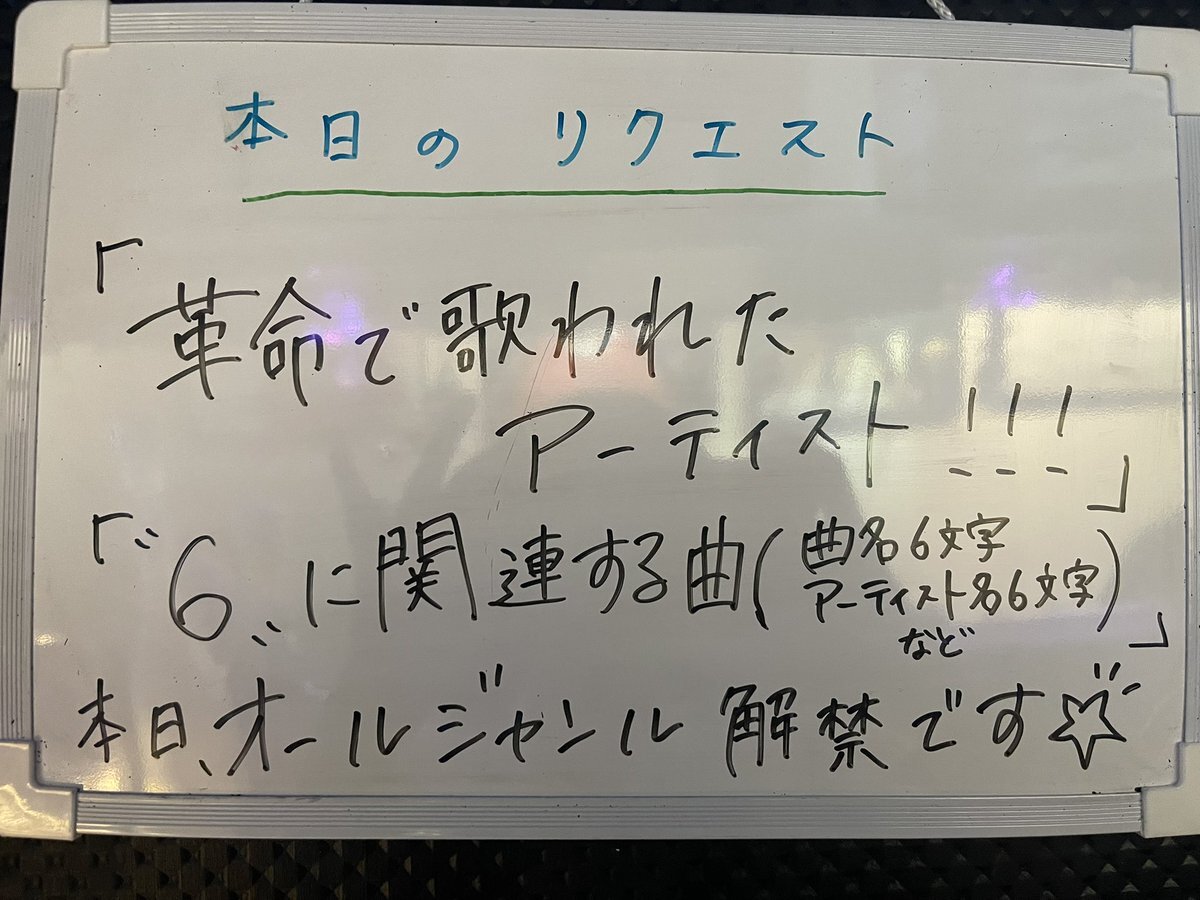 本日のリクエスト
「革命で歌われた
アーティスト!!!」
「"6"に関連する曲(曲名6文字
アーティスト名6文字)
など」
本日、オールジャンル解禁です☆